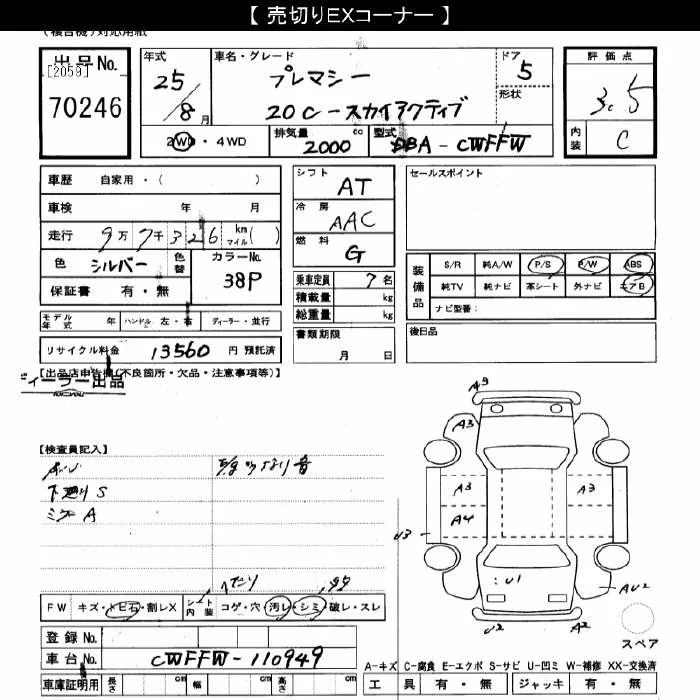 【 売切りEXコーナー 】
(複合機)対応用紙
出品No.
[2059]
70246
年式
25/8月
車名・グレード
プレマシー
20C-スカイアクティブ
ドア
5
形状
評価点
3.5
内装
C
2WD・4WD
排気量
2000cc
型式
DBA-CWFFW
車歴 自家用・( )
車検 年 月
走行 9万7千326km マイル( )
色 シルバー 色替
カラーNo.
38P
保証書 有・無
シフト
AT
冷房
AAC
燃料
G
乗車定員 7名
積載量 kg
総重量 kg
書類期限
月 日
セールスポイント
装備品
S/R 純A/W P/S P/W ABS
純TV 純ナビ 革シート 外ナビ エアB
ナビ型番:
モデル年式 年 ハンドル 左・右 ディーラー・並行
後日品
リサイクル料金 13560円 預託済
【出品店申告欄(不良箇所・欠品・注意事項等)】
ディーラー出品
【検査員記入】
下廻りS
ミラーA
FW キズ・トビ石・割レX
シート内装 コゲ・穴・汚レ・シミ・破レ・スレ
登録No.
車台No. CWFFW-110949
車庫証明用 長さ cm 幅 cm 高さ cm
A3
A3
A3
A3
A4
U3
U1
AU2
U2
A2
スペア
A-キズ C-腐食 E-エクボ S-サビ U-凹ミ W-補修 XX-交換済
工具 有・無 ジャッキ 有・無